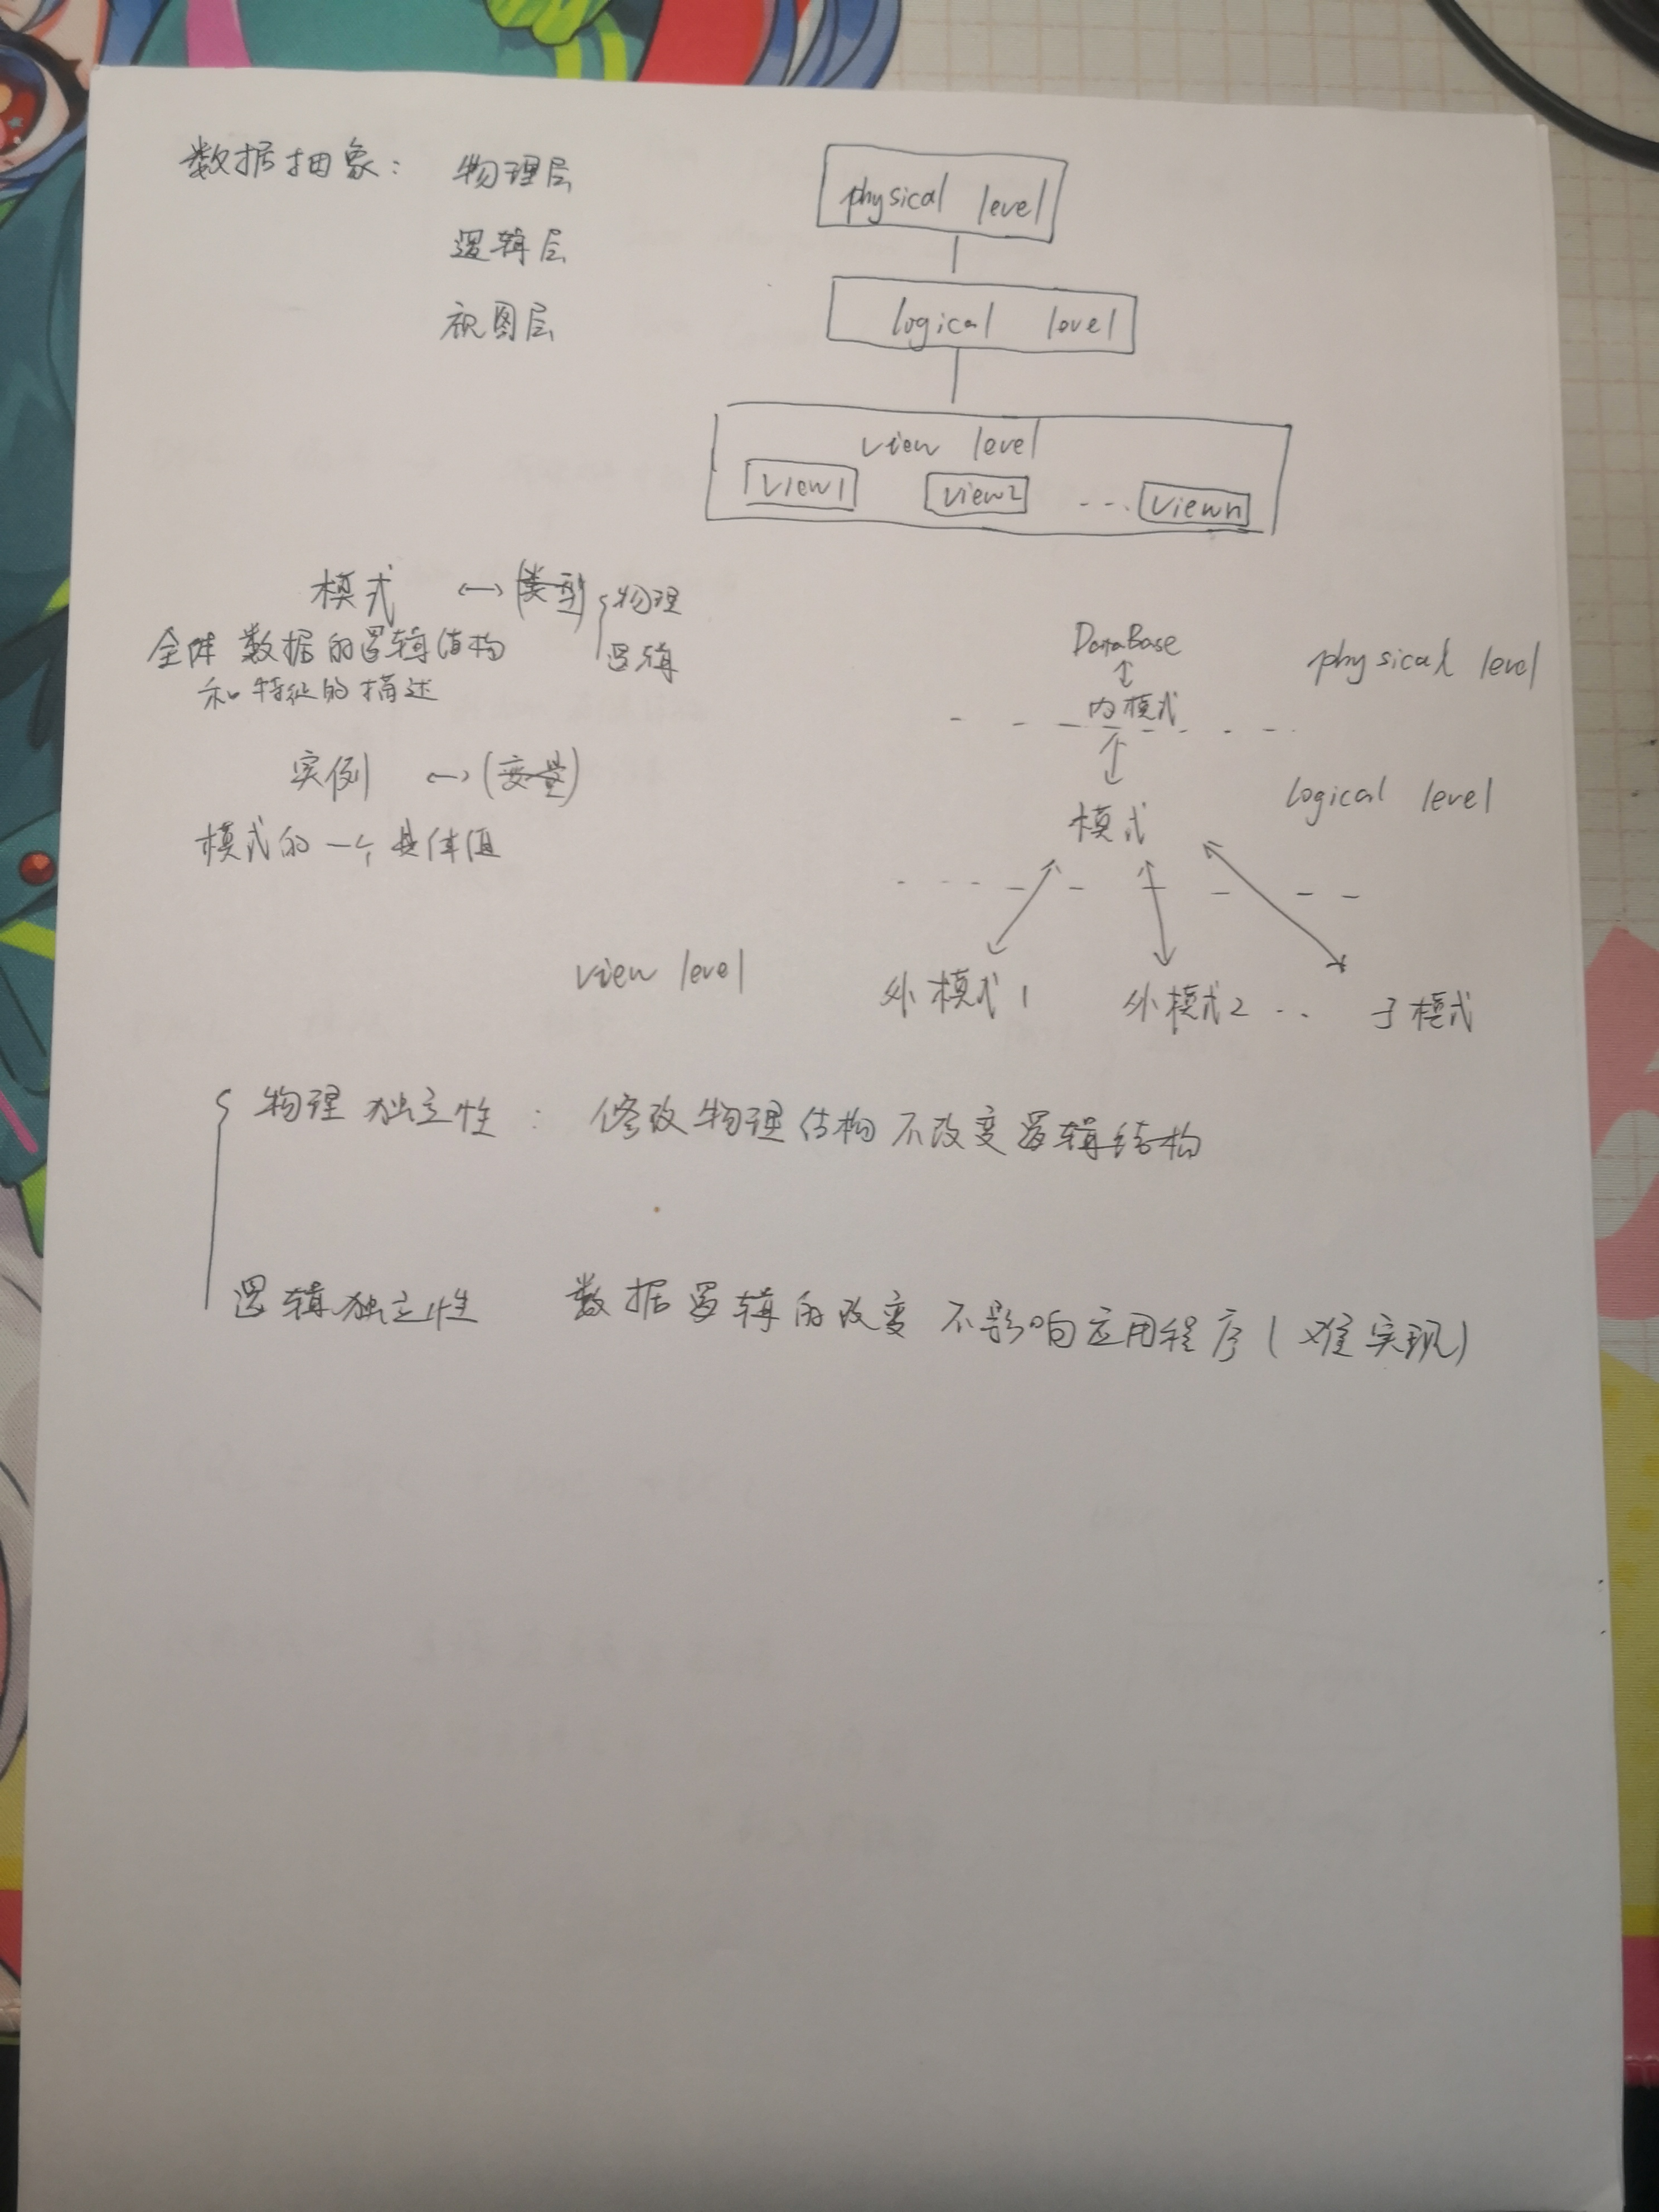 数据抽象: 物理层
逻辑层
视图层
physical level
logical level
view level
view1 view2 ... viewn
模式 ↔ (类型) 物理
逻辑
全体数据的逻辑结构
和特征的描述
实例 ↔ (变量)
模式的一个具体值
DataBase
physical level
内模式
logical level
模式
view level
外模式1 外模式2 .. 子模式
物理独立性: 修改物理结构不改变逻辑结构
逻辑独立性 数据逻辑的改变不影响应用程序(难实现)